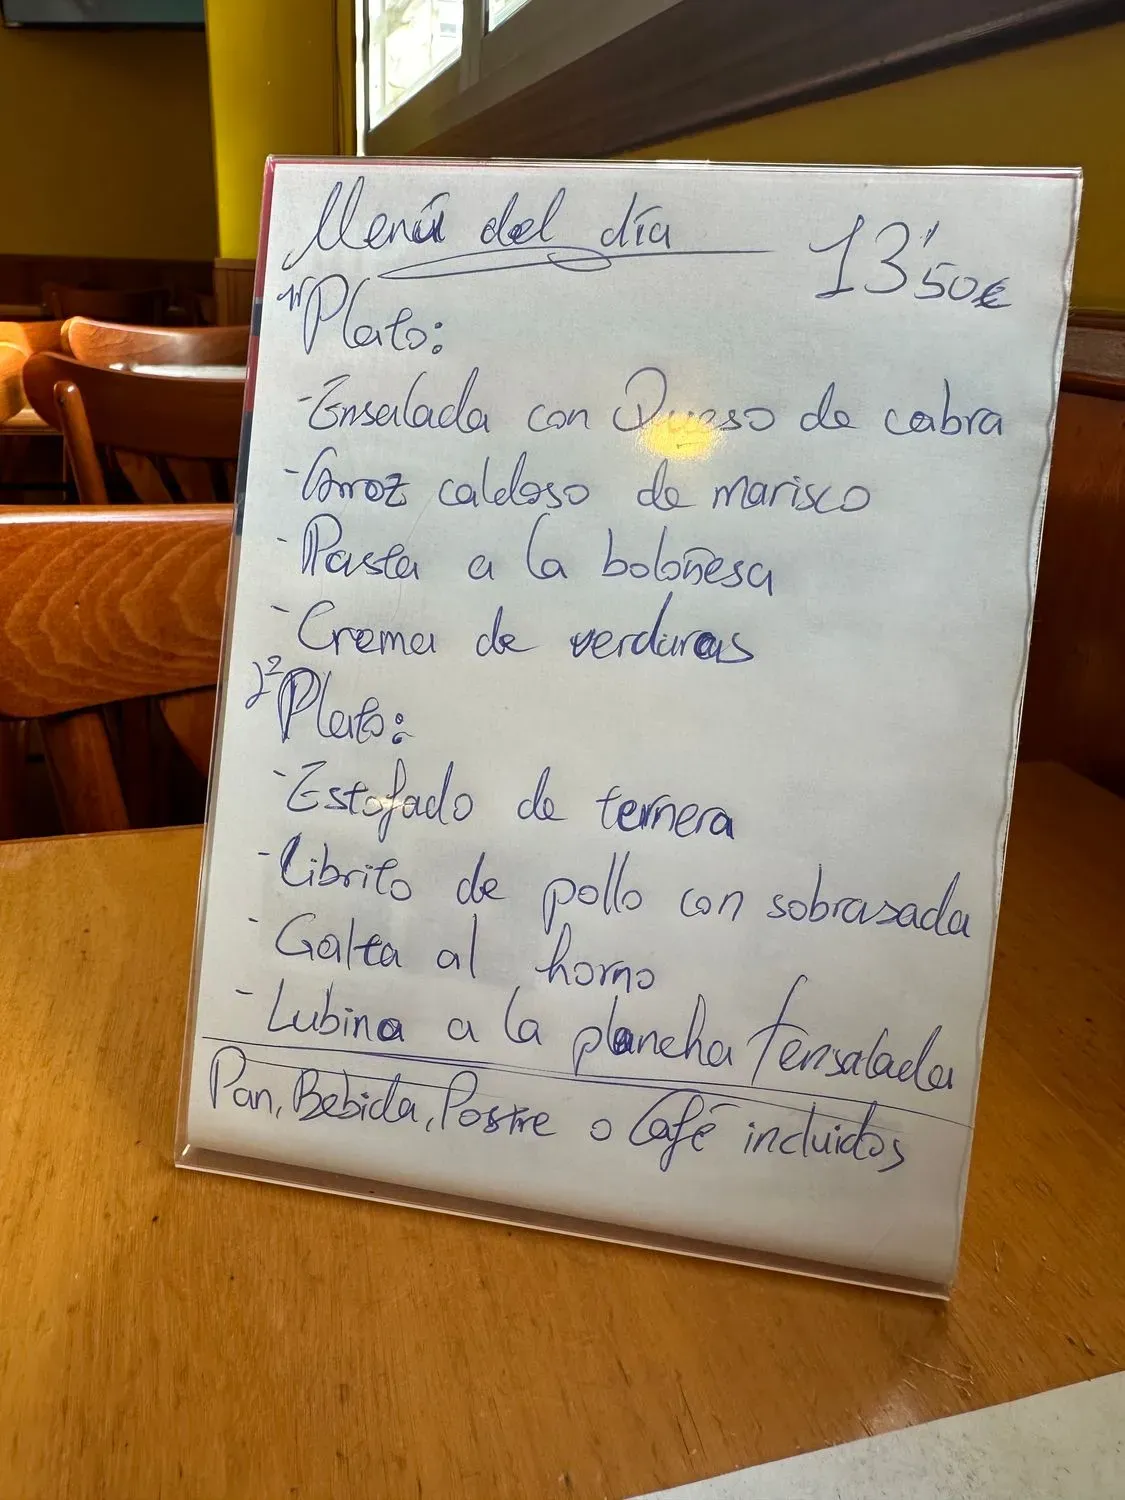 Menú del día 13'50€
1r Plato:
-Ensalada con Queso de cabra
-Arroz caldoso de marisco
-Pasta a la boloñesa
-Crema de verduras
2º Plato:
-Estofado de ternera
-Librito de pollo con sobrasada
-Galta al horno
-Lubina a la plancha + ensalada
Pan, Bebida, Postre o Café incluidos